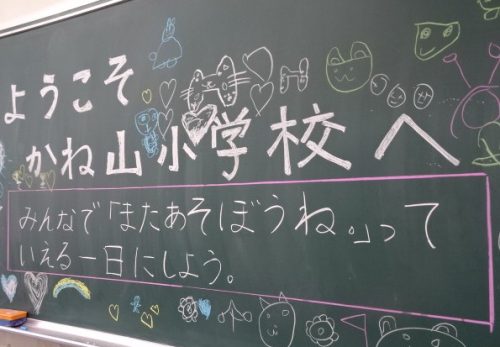 ようこそ
かね山小学校へ
みんなで「またあそぼうね。」って
いえる一日にしよう。